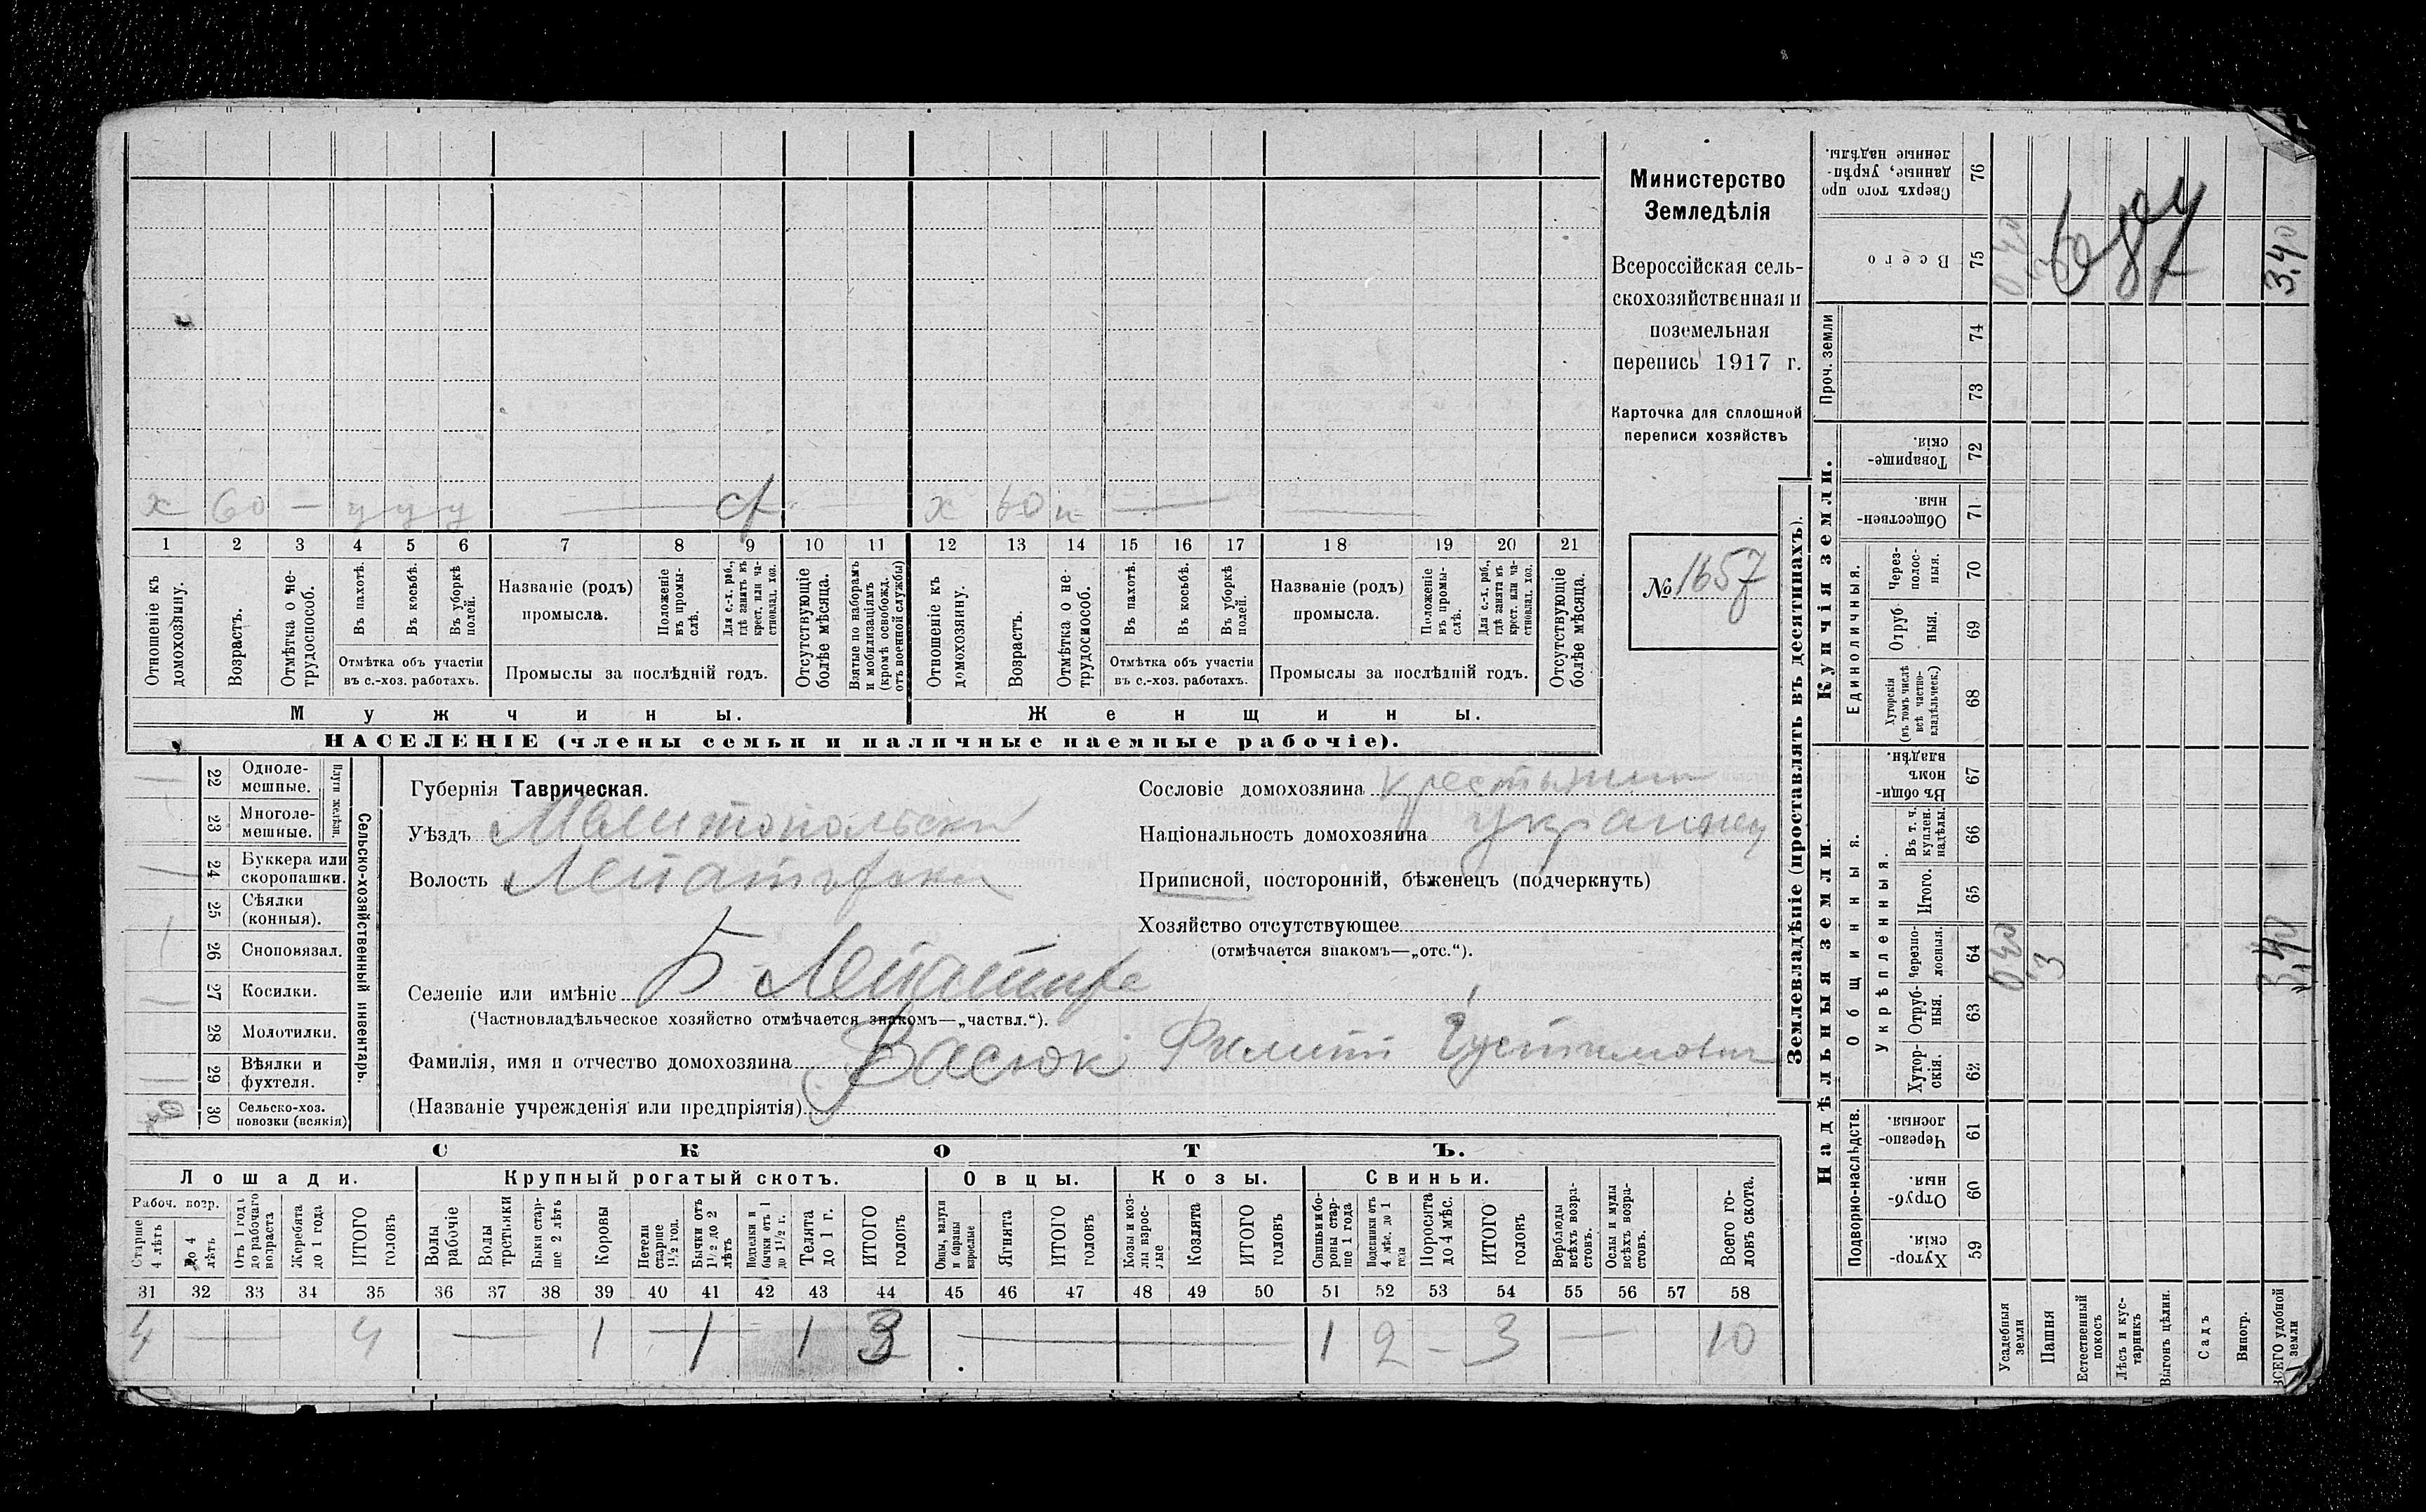 х 60 — у у у — х 60 —
1 2 3 4 5 6 7 8 9 10 11 12 13 14 15 16 17 18 19 20 21
Отношеніе къ домохозяину.
Возрастъ.
Отмѣтка о нетрудоспособ.
Въ пахотѣ.
Въ косьбѣ.
Въ уборкѣ полей.
Отмѣтка объ участіи
въ с.-хоз. работахъ.
Названіе (родъ)
промысла.
Положеніе въ промыслѣ.
Для с.-х. раб., гдѣ занятъ въ крест. или частновлад. хоз.
Промыслы за послѣдній годъ.
Отсутствующіе болѣе мѣсяца.
Взятые по наборамъ и мобилизаціямъ (кромѣ освобожд. отъ военной службы)
Отношеніе къ домохозяину.
Возрастъ.
Отмѣтка о нетрудоспособ.
Въ пахотѣ.
Въ косьбѣ.
Въ уборкѣ полей.
Отмѣтка объ участіи
въ с.-хоз. работахъ.
Названіе (родъ)
промысла.
Положеніе въ промыслѣ.
Для с.-х. раб., гдѣ занята въ крест. или частновлад. хоз.
Промыслы за послѣдній годъ.
Отсутствующіе болѣе мѣсяца.
Мужчины. Женщины.
НАСЕЛЕНІЕ (члены семьи и наличные наемные рабочіе).
Министерство
Земледѣлія
Всероссійская сель-
скохозяйственная и
поземельная
перепись 1917 г.
Карточка для сплошной
переписи хозяйствъ
№ 1657
22 Одноле-
мешные.
23 Многоле-
мешные.
Плуги желѣзн.
24 Буккера или
скоропашки.
25 Сѣялки
(конныя).
26 Сноповязал.
27 Косилки.
28 Молотилки.
29 Вѣялки и
фухтеля.
30 Сельско-хоз.
повозки (всякія)
Сельско-хозяйственный инвентарь.
Губернія Таврическая.
Уѣздъ Мелитопольскій
Волость
Селеніе или имѣніе Б
(Частновладѣльческое хозяйство отмѣчается знакомъ—„частвл.“).
Фамилія, имя и отчество домохозяина Васюкъ Филипп Густимович
(Названіе учрежденія или предпріятія)
Сословіе домохозяина крестьянин
Національность домохозяина украинец
Приписной, посторонній, бѣженецъ (подчеркнуть)
Хозяйство отсутствующее
(отмѣчается знакомъ—„отс.“).
СКОТЪ.
Лошади. Крупный рогатый скотъ. Овцы. Козы. Свиньи.
Рабоч. возр.
Старше 4 лѣтъ
До 4 лѣтъ
Отъ 1 года до рабочаго возраста
Жеребята до 1 года
ИТОГО головъ
Волы рабочіе
Волы третьяки
Быки старше 2 лѣтъ
Коровы
Нетели старше 1½ год.
Бычки отъ 1½ до 2 лѣтъ
Подтелки и бычки отъ 1 до 1½ г.
Телята до 1 г.
ИТОГО головъ
Овцы, валухи и бараны взрослые
Ягнята
ИТОГО головъ
Козы и козлы взрослые
Козлята
ИТОГО головъ
Свиньи и боровы старше 1 года
Подсвинки отъ 4 мѣс. до 1 года
Поросята до 4 мѣс.
ИТОГО головъ
Верблюды всѣхъ возрастовъ.
Ослы и мулы всѣхъ возрастовъ.
Всего головъ скота.
31 32 33 34 35 36 37 38 39 40 41 42 43 44 45 46 47 48 49 50 51 52 53 54 55 56 57 58
4 — 4 — 1 — 1 1 3 — 1 2 - 3 — 10
Землевладѣніе (проставлять въ десятинахъ).
Купчія земли.
Надѣльныя земли.
Сверхъ того проданные, укрѣпленные надѣлы. 76
Всего 75
Проч. земли 74 73
Товарищескія. 72
Общественныя. 71
Единоличныя.
Черезполосныя. 70
Отрубныя. 69
Хуторскія (въ томъ числѣ всѣ частновладѣльческ.) 68
Общинныя.
Въ общинномъ владѣн. 67
Укрѣпленныя.
Въ т. ч. куплен. надѣлы. 66
Итого. 65
Черезполосныя. 64
Отрубныя. 63
Хуторскія. 62
Подворно-наслѣдств.
Черезполосныя. 61
Отрубныя. 60
Хуторскія. 59
Усадебныя земли
Пашня
Естественный покосъ
Лѣсъ и кустарникъ
Выгонъ цѣлин.
Садъ
Виногр.
ВСЕГО удобной земли
0,40 3 3,40
0,40 3 3,40
687